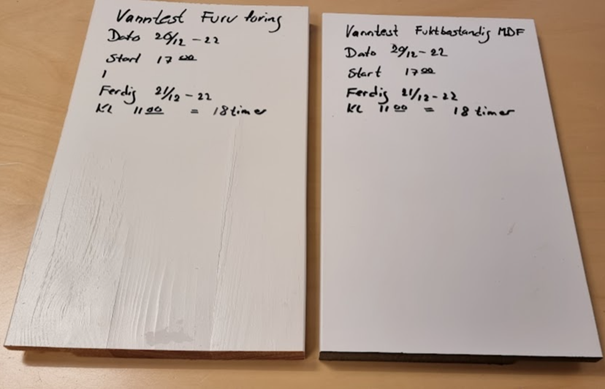 Vanntest Furu foring
Dato 20/12-22
Start 17 00
Ferdig 21/12-22
KL 11 00 = 18 timer
Vanntest Fuktbestandig MDF
Dato 20/12-22
Start 17 00
Ferdig 21/12-22
KL 11 00 = 18 timer